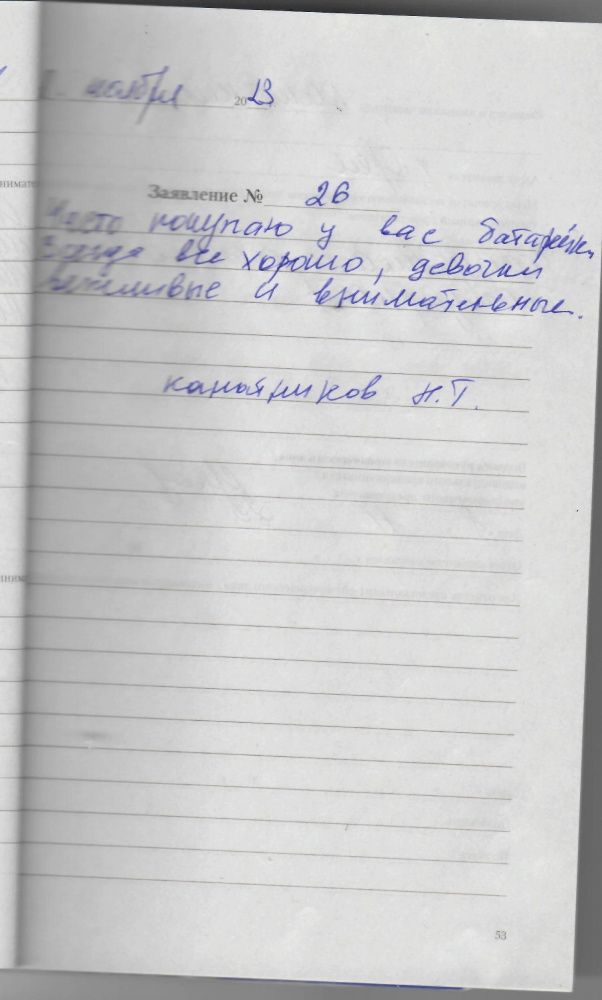 ноября 2013
Заявление № 26
Часто покупаю у вас батарейки,
Всегда все хорошо, девочки
вежливые и внимательные.
Н.Т.
53